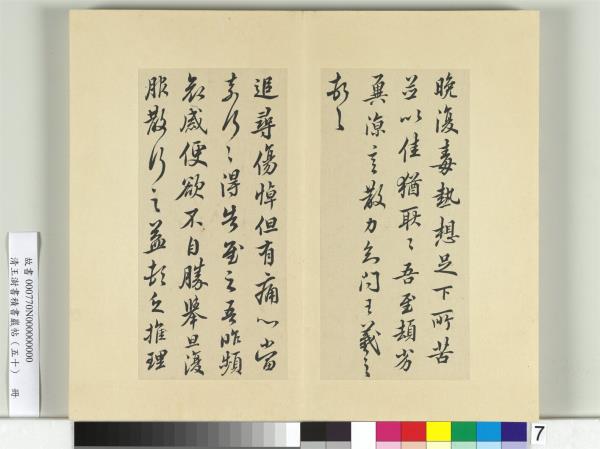 晚復毒熱想足下所苦
並以佳猶耿々吾至頓劣
冀涼言散力知問王羲之
頓首
追尋傷悼但有痛心當
奈何々得告慰之吾昨頻
哀感便欲不自勝舉旦復
服散行之益頓乏推理
故書 000770N000000000
清王澍書積書巖帖(五十) 冊
7